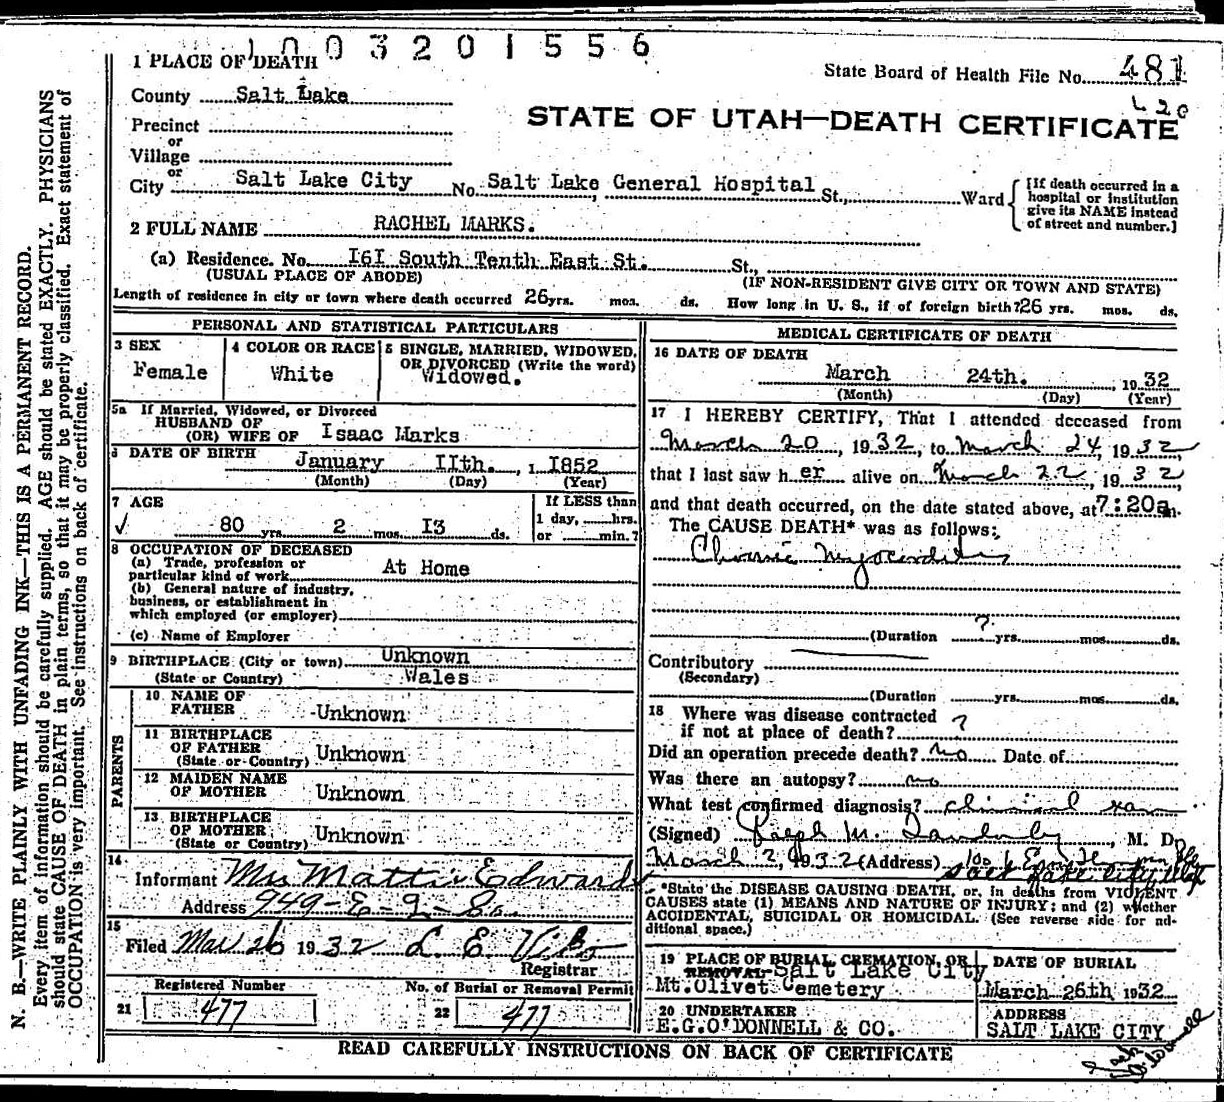 1003201556
1 PLACE OF DEATH
State Board of Health File No. 481
County Salt Lake
420
STATE OF UTAH—DEATH CERTIFICATE
Precinct
or
Village
or
City Salt Lake City No. Salt Lake General Hospital St., Ward
[If death occurred in a hospital or institution give its NAME instead of street and number.]
2 FULL NAME RACHEL MARKS.
(a) Residence. No. I6I South Tenth East St. St.,
(USUAL PLACE OF ABODE) (IF NON-RESIDENT GIVE CITY OR TOWN AND STATE)
Length of residence in city or town where death occurred 26 yrs. mos. ds. How long in U. S., if of foreign birth? 26 yrs. mos. ds.
PERSONAL AND STATISTICAL PARTICULARS
3 SEX
Female
4 COLOR OR RACE
White
5 SINGLE, MARRIED, WIDOWED,
OR DIVORCED (Write the word)
Widowed.
5a If Married, Widowed, or Divorced
HUSBAND OF
(OR) WIFE OF Isaac Marks
6 DATE OF BIRTH January IIth. , 1 I852
(Month) (Day) (Year)
7 AGE
80 yrs. 2 mos. I3 ds.
If LESS than
1 day, hrs.
or min.?
8 OCCUPATION OF DECEASED
(a) Trade, profession or
particular kind of work At Home
(b) General nature of industry,
business, or establishment in
which employed (or employer)
(c) Name of Employer
9 BIRTHPLACE (City or town) Unknown
(State or Country) Wales
PARENTS
10 NAME OF
FATHER Unknown
11 BIRTHPLACE
OF FATHER
(State or Country) Unknown
12 MAIDEN NAME
OF MOTHER Unknown
13 BIRTHPLACE
OF MOTHER
(State or Country) Unknown
14
Informant Mrs Mattie Edwards
Address 949-E-2-So.
15
Filed Mar 26 1932 L. E.
Registrar
Registered Number
21 477
No. of Burial or Removal Permit
22 477
MEDICAL CERTIFICATE OF DEATH
16 DATE OF DEATH
March 24th. , 1932
(Month) (Day) (Year)
17 I HEREBY CERTIFY, That I attended deceased from
March 20, 1932, to March 24, 1932
that I last saw h er alive on March 22, 1932
and that death occurred, on the date stated above, at 7:20a m.
The CAUSE DEATH* was as follows:
Chronic Myocarditis
(Duration ? yrs. mos. ds.
Contributory
(Secondary)
(Duration yrs. mos. ds.
18 Where was disease contracted
if not at place of death? ?
Did an operation precede death? no Date of
Was there an autopsy? no
What test confirmed diagnosis? clinical exam
(Signed) Ralph M. , M. D.
March 2, 1932 (Address)
Salt Lake City Utah
*State the DISEASE CAUSING DEATH, or, in deaths from VIOLENT
CAUSES state (1) MEANS AND NATURE OF INJURY; and (2) whether
ACCIDENTAL, SUICIDAL OR HOMICIDAL. (See reverse side for ad-
ditional space.)
19 PLACE OF BURIAL, CREMATION, OR
REMOVAL Salt Lake City
Mt.Olivet Cemetery
DATE OF BURIAL
March 26th 1932
20 UNDERTAKER
E.G.O'DONNELL & CO.
ADDRESS
SALT LAKE CITY
READ CAREFULLY INSTRUCTIONS ON BACK OF CERTIFICATE
N. B.—WRITE PLAINLY WITH UNFADING INK—THIS IS A PERMANENT RECORD.
Every item of information should be carefully supplied. AGE should be stated EXACTLY. PHYSICIANS
should state CAUSE OF DEATH in plain terms, so that it may be properly classified. Exact statement of
OCCUPATION is very important. See instructions on back of certificate.